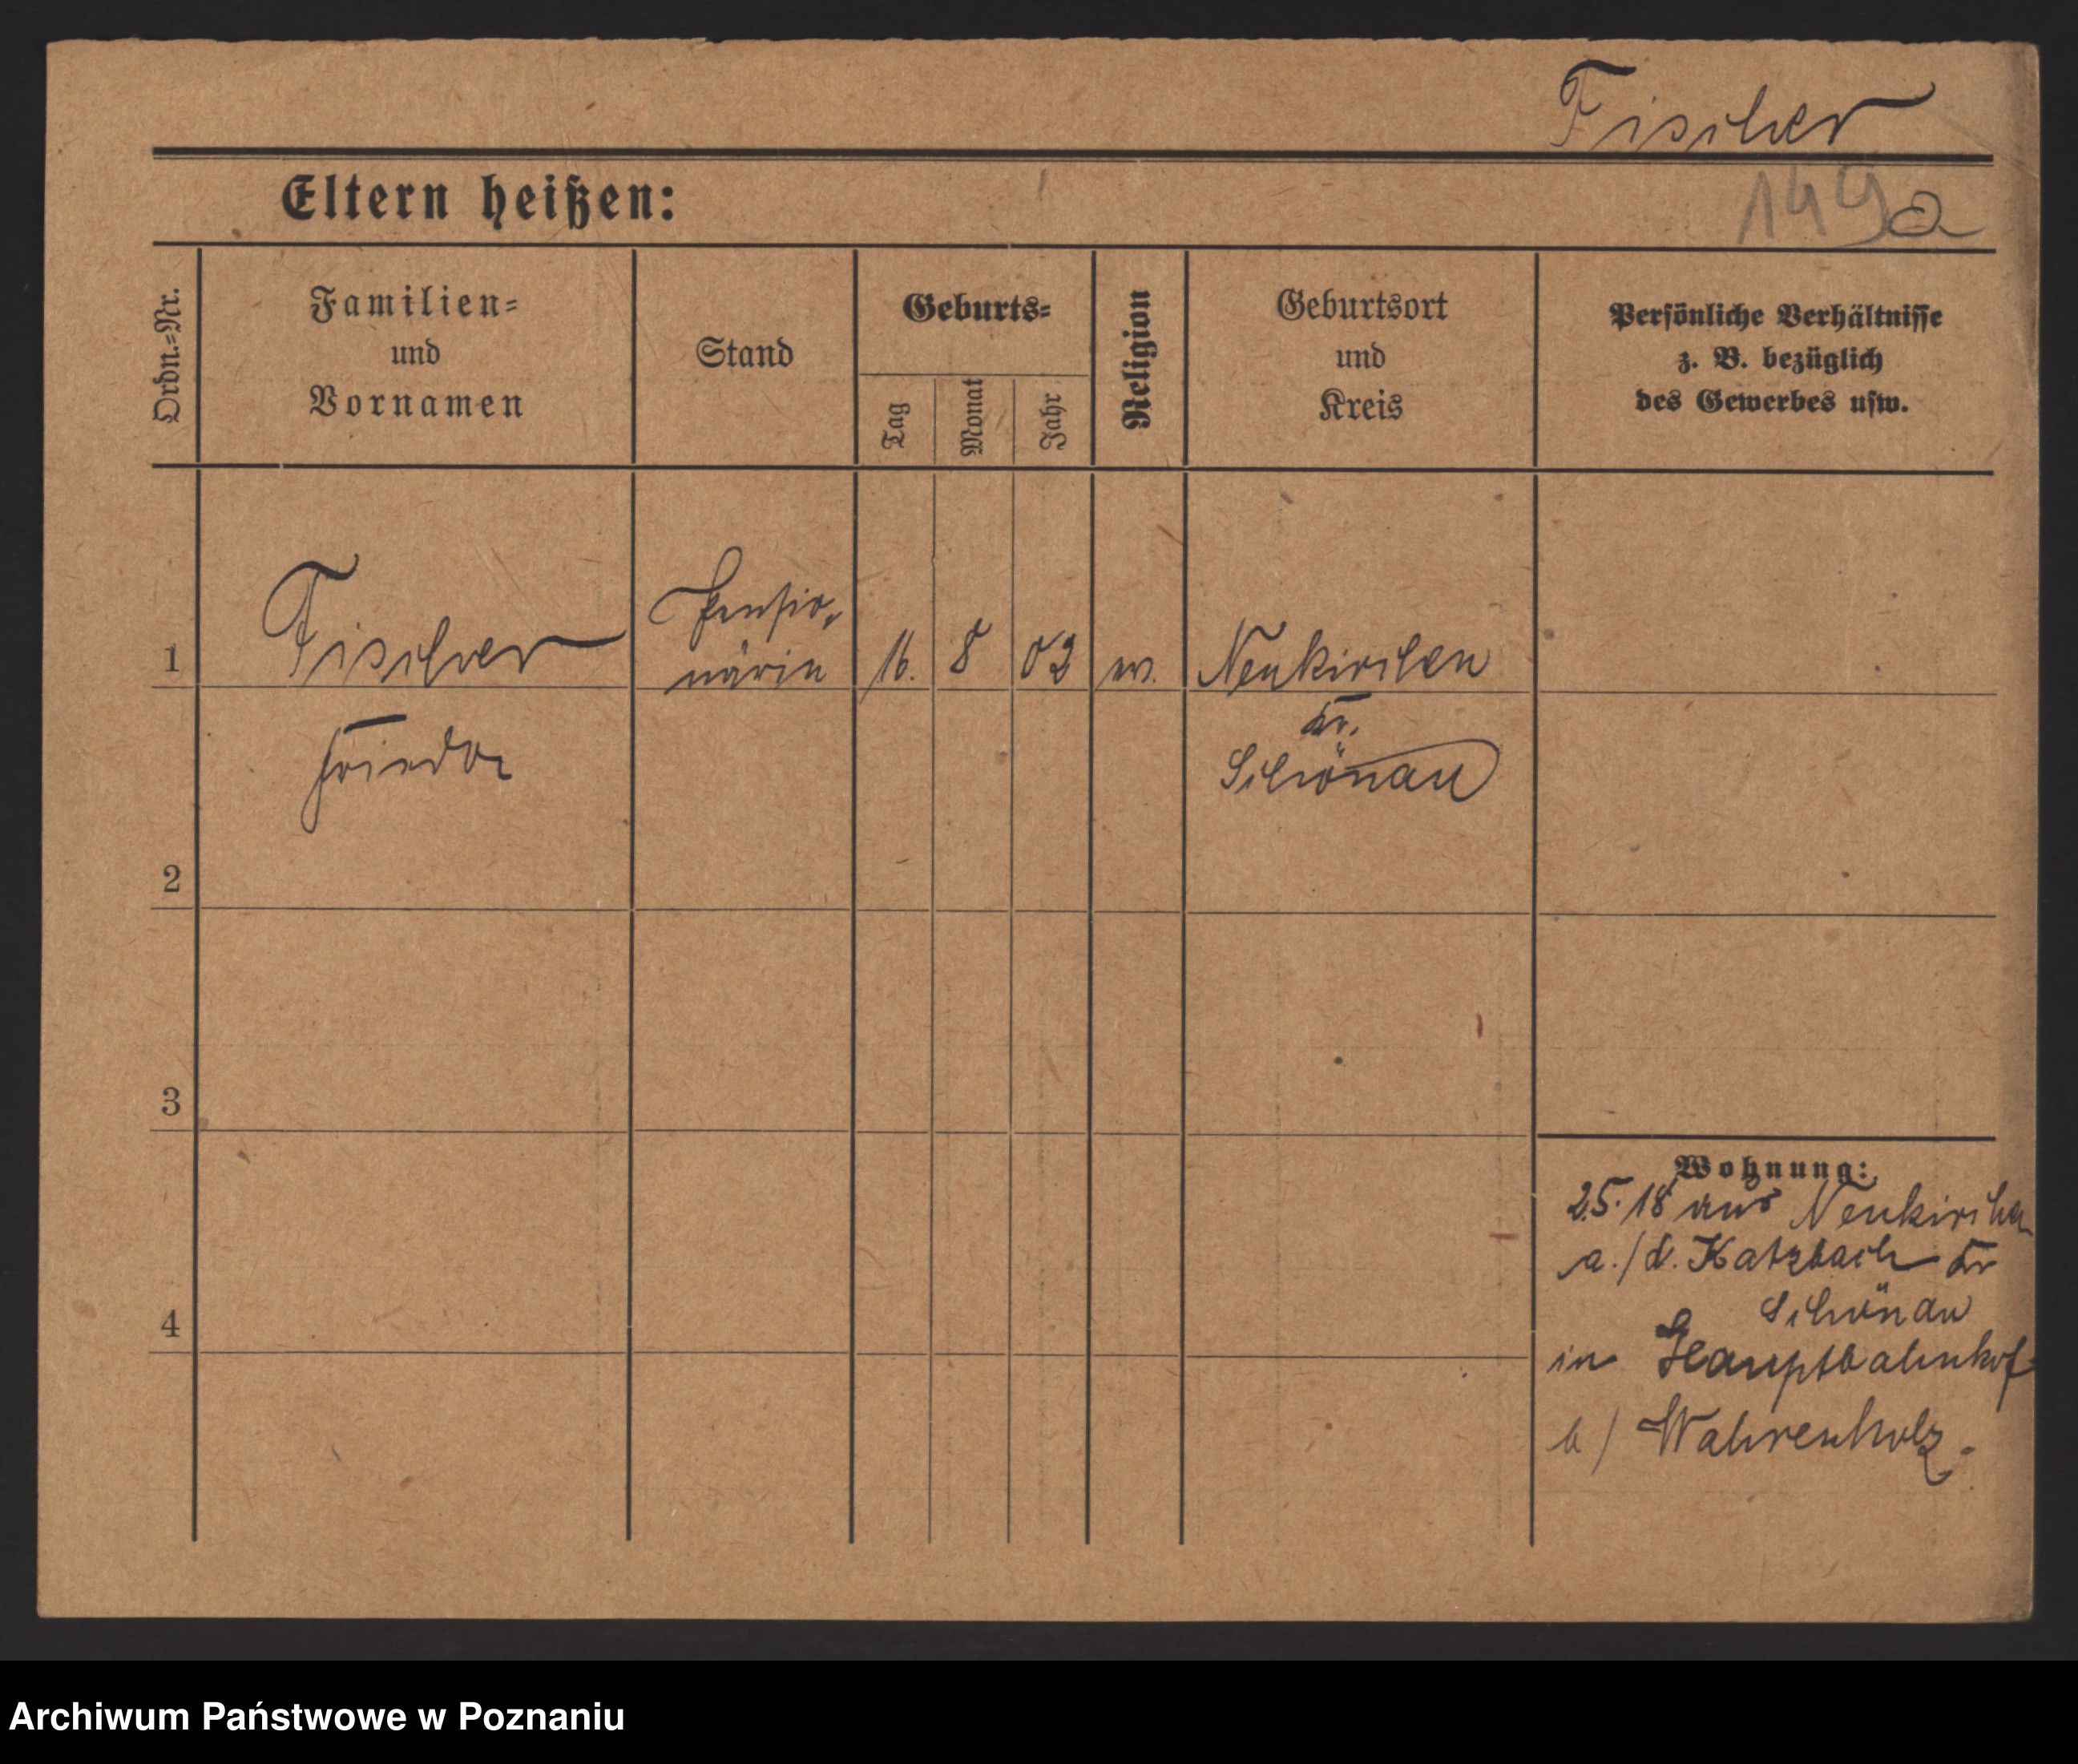 Fischer
Eltern heißen:
149a
Ordn.=Nr.
Familien=
und
Vornamen
Stand
Geburts=
Tag
Monat
Jahr
Religion
Geburtsort
und
Kreis
Persönliche Verhältnisse
z. B. bezüglich
des Gewerbes usw.
1
Fischer
Pensio,
närin
16.
8
02
Neukirchen
Kr.
Frieda
Schönau
2
3
4
Wohnung:
25. 18 aus Neukirchen
a./d. Katzbach Kr
Schönau
in Hauptbahnhof
b/ Wahrenholz.
Archiwum Państwowe w Poznaniu